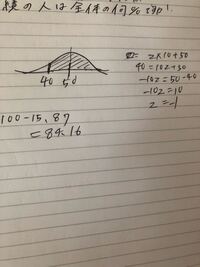 績の人は全体の何%ですか!
40 50
Z×10+50
40=10Z+50
-10Z=50-40
-10Z=10
Z=-1
100-15.87
=84.16